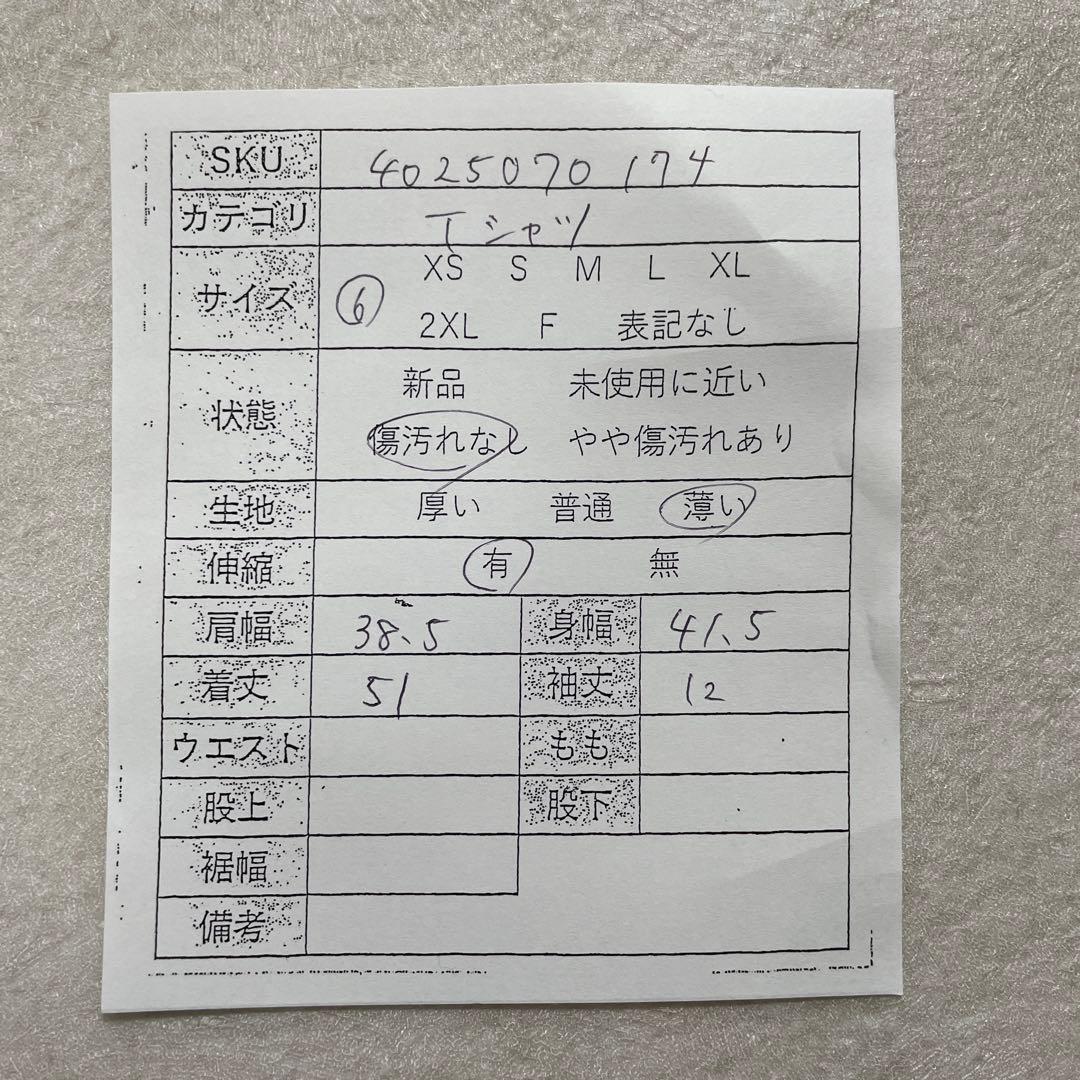 SKU 4025070174
カテゴリ Tシャツ
XS S M L XL
サイズ 6
2XL F 表記なし
新品 未使用に近い
状態
傷汚れなし やや傷汚れあり
生地 厚い 普通 薄い
伸縮 有 無
肩幅 38.5 身幅 41.5
着丈 51 袖丈 12
ウエスト もも
股上 股下
裾幅
備考